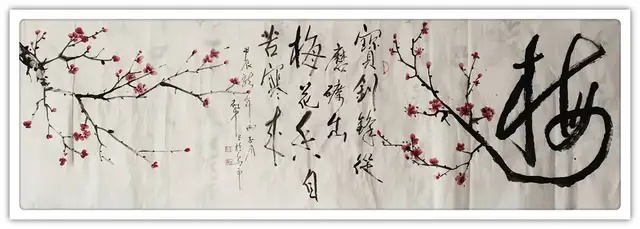 梅
寶劍鋒從
磨礪出
梅花香自
苦寒來